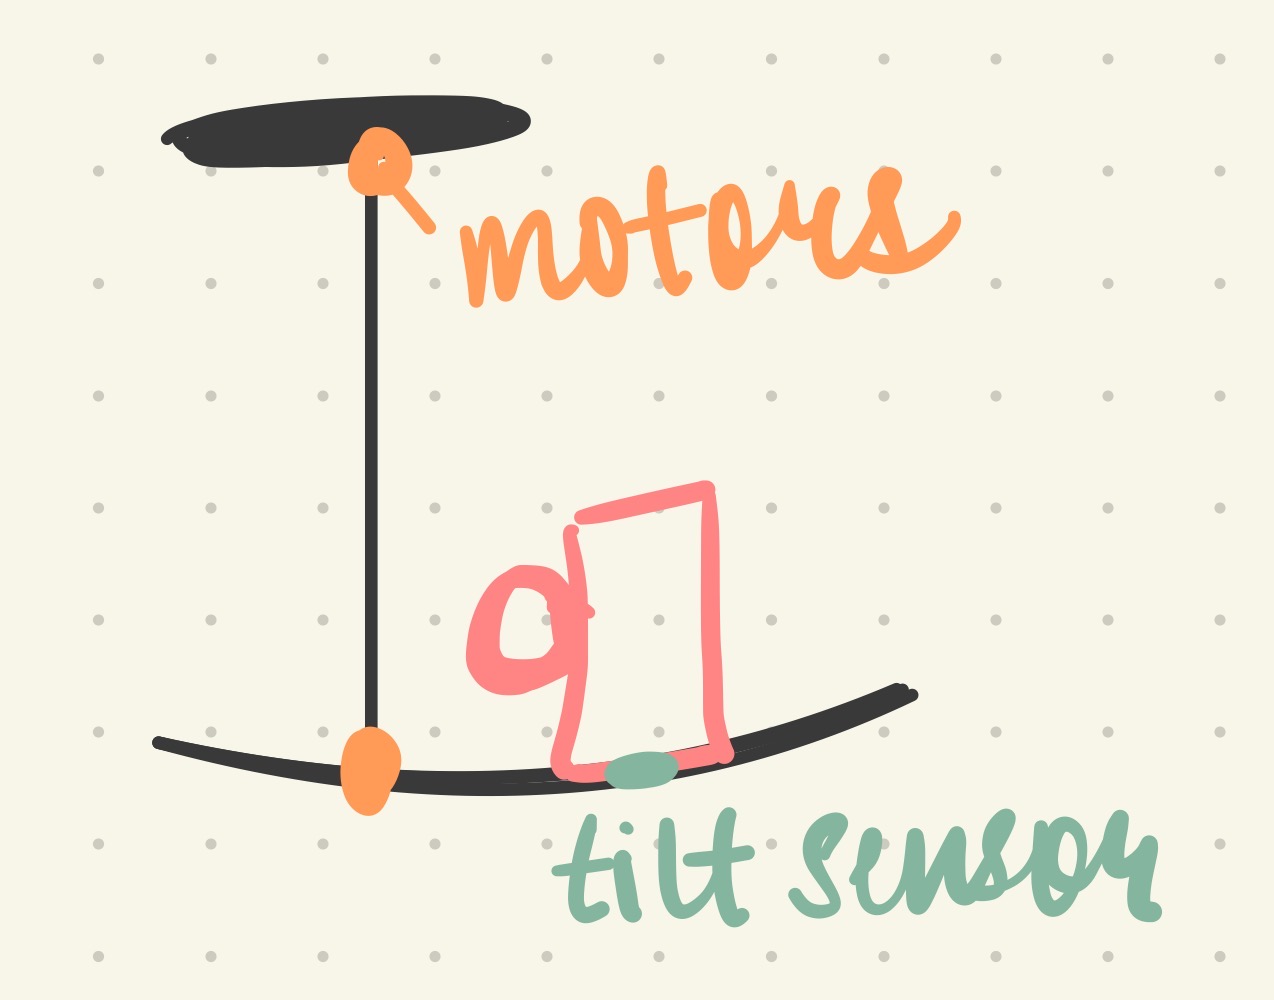 motors
tilt sensor